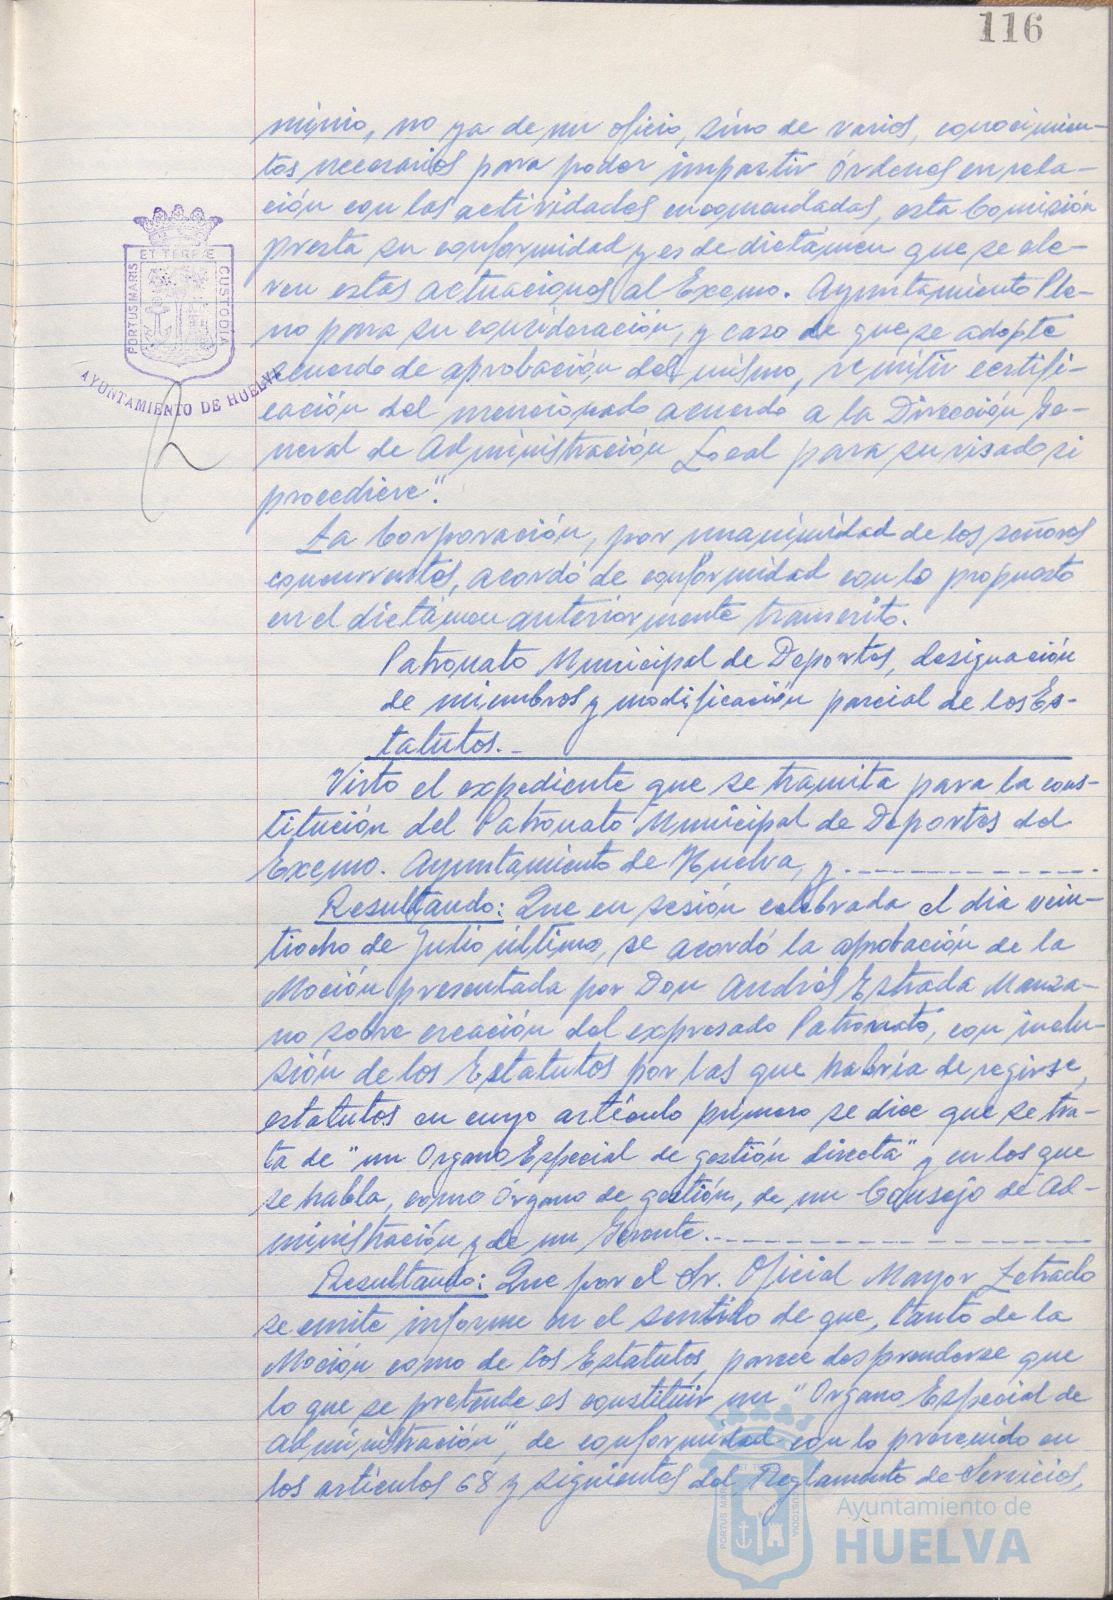 116
minio, no ya de un oficio, sino de varios, conocimien-
tos necesarios para poder impartir órdenes en rela-
ción con las actividades encomendadas, esta Comisión
presta su conformidad y es de dictámen que se ele-
ven estas actuaciones al Excmo. Ayuntamiento Ple-
no para su consideración, y caso de que se adopte
acuerdo de aprobación del mismo, remitir certifi-
cación del mencionado acuerdo a la Dirección Ge-
neral de Administración Local para su visado si
procediere".
La Corporación, por unanimidad de los señores
concurrentes, acordó de conformidad con lo propuesto
en el dictámen anteriormente transcrito.
Patronato Municipal de Deportes, designación
de miembros y modificación parcial de los Es-
tatutos.-
Visto el expediente que se tramita para la cons-
titución del Patronato Municipal de Deportes del
Excmo. Ayuntamiento de Huelva, y
Resultando: Que en sesión celebrada el día vein-
tiocho de Julio último, se acordó la aprobación de la
Moción presentada por Don Andrés Estrada Manza-
no sobre creación del expresado Patronato, con inclu-
sión de los Estatutos por las que habría de regirse,
estatutos en cuyo artículo primero se dice que se tra-
ta de "un Organo Especial de gestión directa" y en los que
se habla, como Órgano de gestión, de un Consejo de Ad-
ministración y de un Gerente.
Resultando: Que por el Sr. Oficial Mayor Letrado
se emite informe en el sentido de que, tanto de la
Moción como de los Estatutos, parece desprenderse que
lo que se pretende es constituir un "Organo Especial de
Administración", de conformidad con lo prevenido en
los artículos 68 y siguientes del Reglamento de Servicios,
PORTUS MARIS
ET TERRÆ
CUSTODIA
AYUNTAMIENTO DE HUELVA
PORTUS MARIS
CUSTODIA
Ayuntamiento de
HUELVA